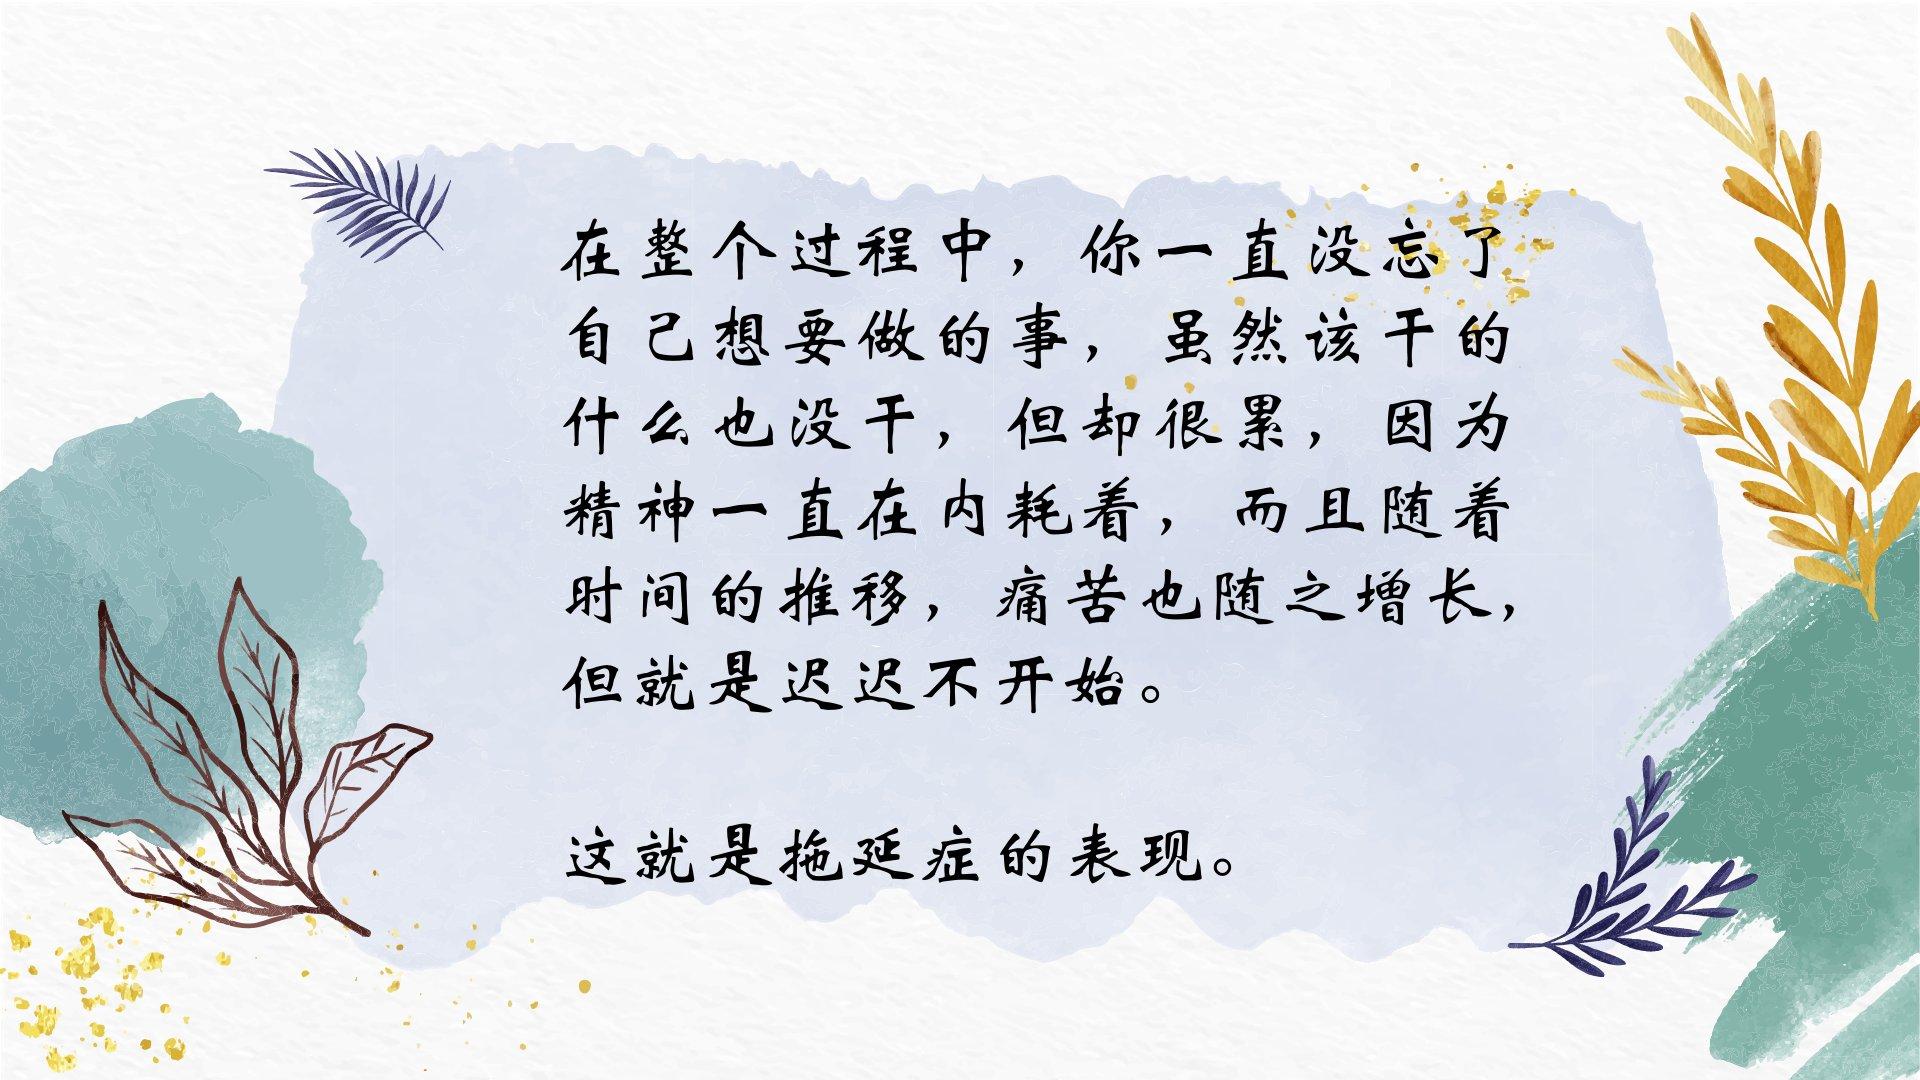 在整个过程中，你一直没忘了
自己想要做的事，虽然该干的
什么也没干，但却很累，因为
精神一直在内耗着，而且随着
时间的推移，痛苦也随之增长，
但就是迟迟不开始。
这就是拖延症的表现。